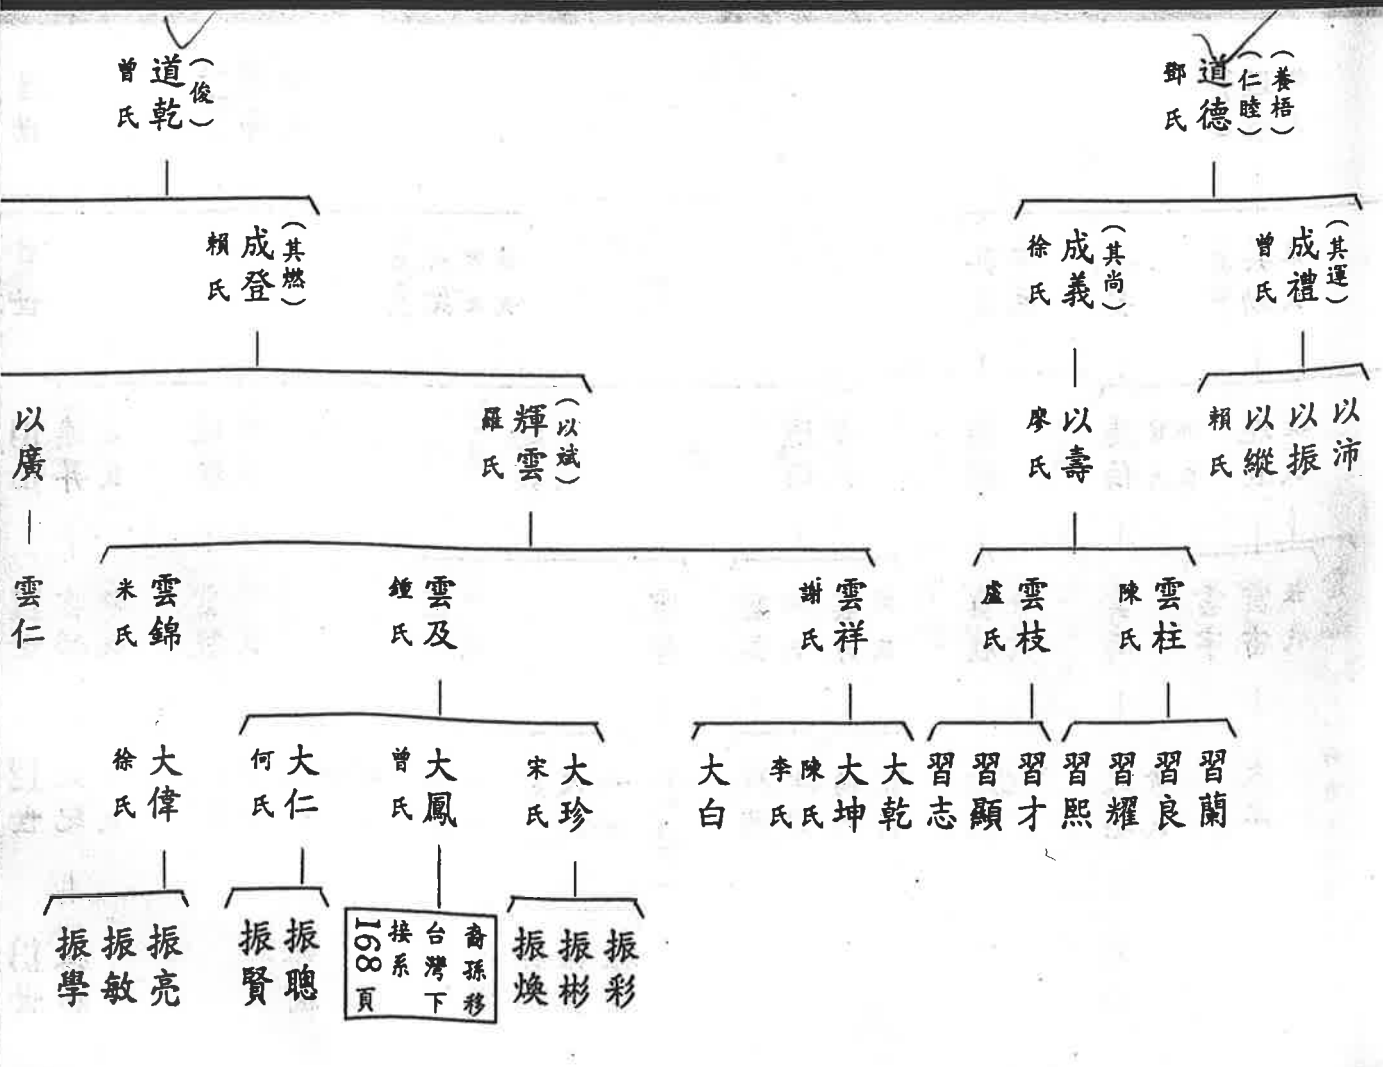 (養梧)
(仁睦)
道德
鄧氏
(俊)
道乾
曾氏
(其運)
成禮
曾氏
(其尚)
成義
徐氏
(其燃)
成登
賴氏
以沛
以振
以縱
賴氏
以壽
廖氏
(以斌)
輝雲
羅氏
以廣
雲柱
陳氏
雲枝
盧氏
雲祥
謝氏
雲及
鍾氏
雲錦
米氏
雲仁
習蘭
習良
習耀
習熙
習才
習顯
習志
大乾
大坤
陳氏
李氏
大白
大珍
宋氏
大鳳
曾氏
大仁
何氏
大偉
徐氏
振彩
振彬
振煥
裔孫移
台灣下
接系
168頁
振聰
振賢
振亮
振敏
振學